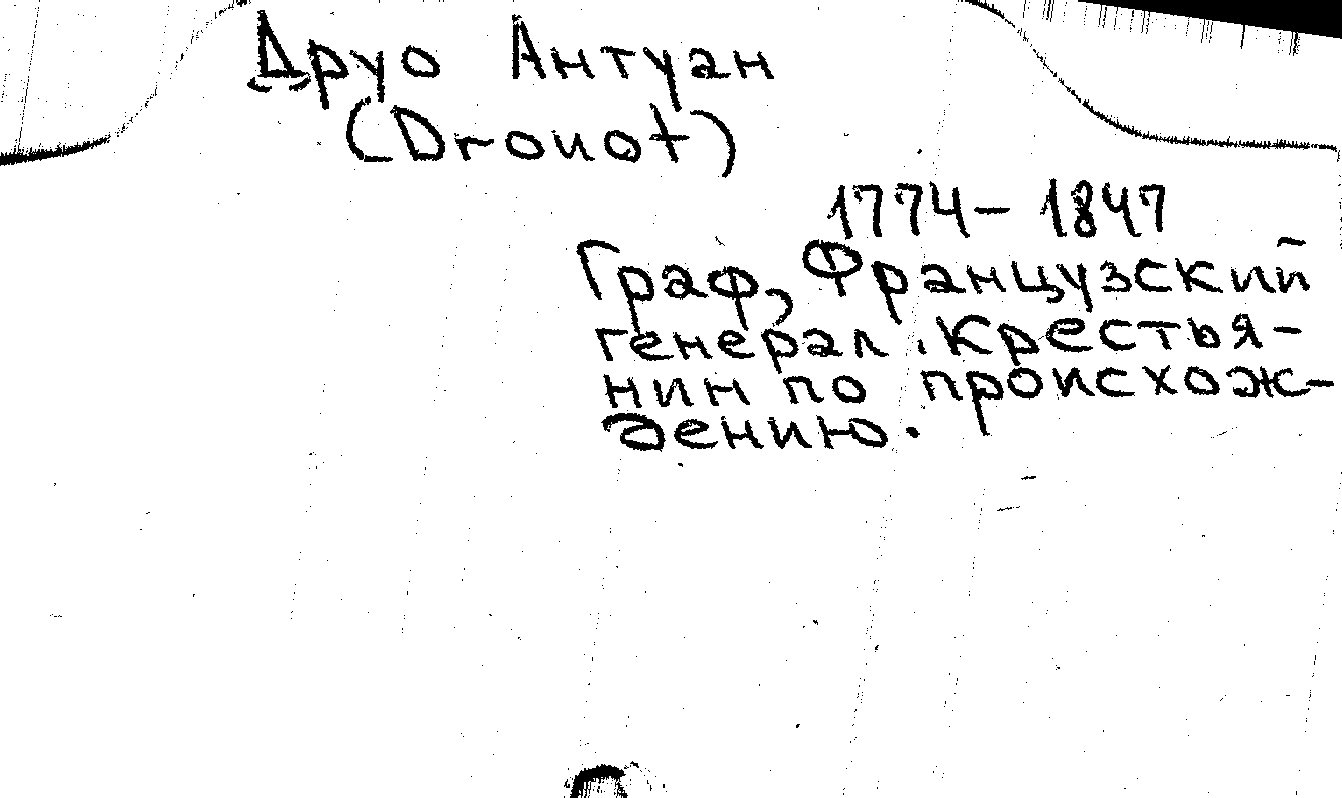 Друо Антуан
(Drouot)
1774-1847
Граф, Французский
генерал. Крестья-
нин по происхож-
дению.